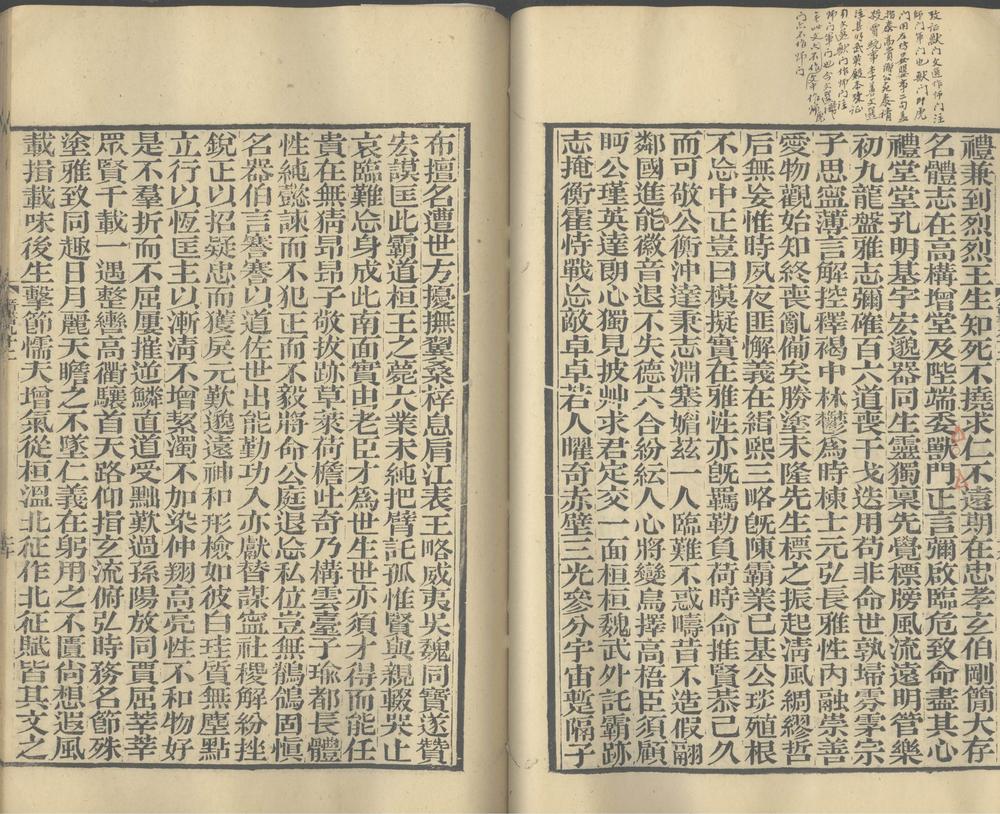 攷証獸门文選作師门注
師门軍门也獸门即虎
门用左傳晏嬰事二句蓋
指泰高貴鄉公死泰
事李善文選
注甚明武英殿本攷証
引文選獸门作師门注
師门軍门也今文選
门亦不作師门
禮兼到烈烈王生知死不撓求仁不遠期在忠孝玄伯剛簡大存
名體志在高構增堂及陛端委獸門正言彌啟臨危致命盡其心
禮堂堂孔明基宇宏邈器同生靈獨稟先覺標牓風流遠明管樂
初九龍盤雅志彌確百六道喪干戈迭用苟非命世孰掃雰雺宗
子思寧薄言解控釋褐中林鬱爲時棟士元弘長雅性內融崇善
愛物觀始知終喪亂備矣勝塗未隆先生標之振起清風綢繆哲
后無妄惟時夙夜匪懈義在緝熙三略旣陳霸業已基公琰殖根
不忘中正豈曰模擬實在雅性亦旣羈勒負荷時命推賢恭己久
而可敬公衡沖達秉志淵塞媚茲一人臨難不惑疇昔不造假翮
鄰國進能徽音退不失德六合紛紜人心將變鳥擇高梧臣須顧
眄公瑾英達朗心獨見披艸求君定交一面桓桓魏武外託霸跡
志掩衡霍恃戰忘敵卓卓若人曜奇赤壁三光參分宇宙蹔隔子
布擅名遭世方擾撫翼桑梓息肩江表王略威夷吳魏同寶遂贊
宏謨匡此霸道桓王之薨大業未純把臂託孤惟賢與親輟哭止
哀臨難忘身成此南面實由老臣才爲世生世亦須才得而能任
貴在無猜昂昂子敬拔跡草萊荷檐吐奇乃構雲臺子瑜都長體
性純懿諫而不犯正而不毅將命公庭退忘私位豈無鶺鴒固愼
名器伯言謇謇以道佐世出能勤功入亦獻替謀寧社稷解紛挫
銳正以招疑忠而獲戾元歎邈遠神和形檢如彼白珪質無塵點
立行以恆匡主以漸淸不增絜濁不加染仲翔高亮性不和物好
是不羣折而不屈屢摧逆鱗直道受黜歎過孫陽放同賈屈莘莘
眾賢千載一遇整轡高衢驤首天路仰揖玄流俯弘時務名節殊
塗雅致同趣日月麗天瞻之不墜仁義在躬用之不匱尙想遐風
載揖載味後生擊節懦夫增氣從桓溫北征作北征賦皆其文之